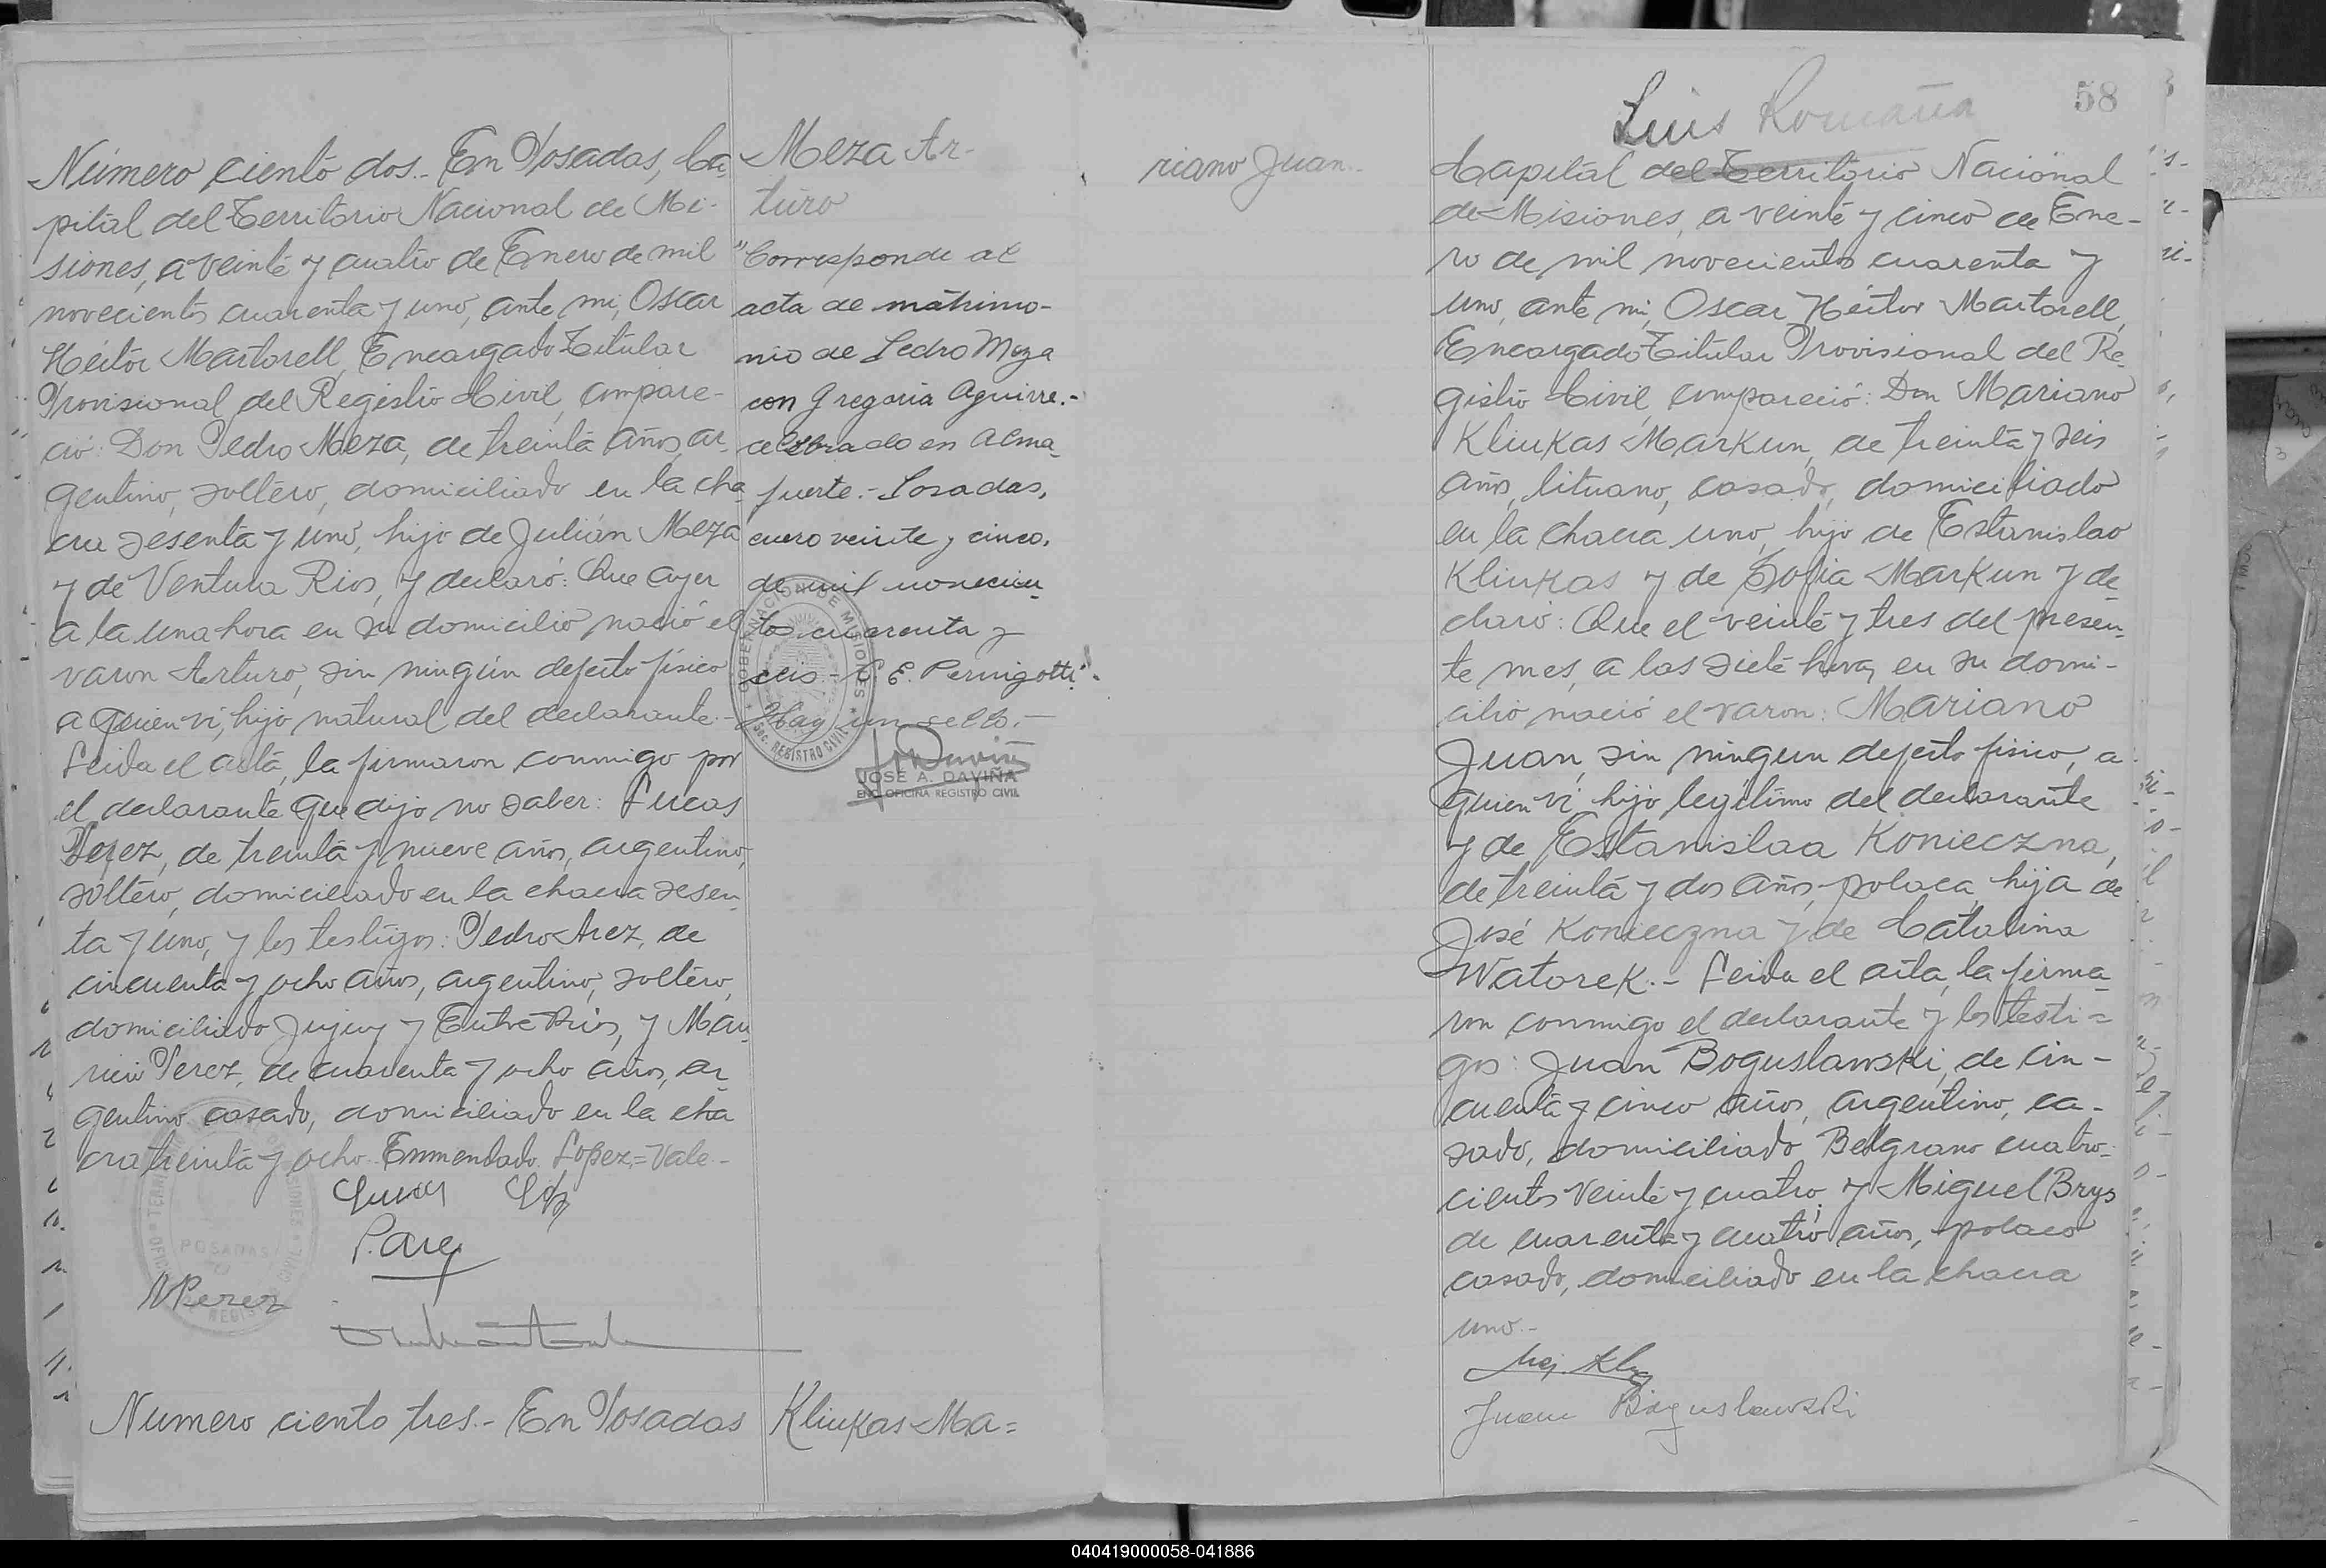 Número ciento dos.- En Posadas, Ca-
pital del Territorio Nacional de Mi-
siones, a veinte y cuatro de Enero de mil
novecientos cuarenta y uno, ante mi, Oscar
Héctor Martorell, Encargado Titular
Provisional del Registro Civil, compare-
ció: Don Pedro Meza, de treinta años, ar-
gentino, soltero, domiciliado en la cha-
cra sesenta y uno, hijo de Julián Meza
y de Ventura Rios, y declaró: Que ayer
a la una hora en su domicilio nació el
varon Arturo, sin ningún defecto físico
a quien ví, hijo natural del declarante.-
Leida el acta, la firmaron conmigo por
el declarante que dijo no saber: Lucas
Lopez, de treinta y nueve años, argentino,
soltero, domiciliado en la chacra sesen-
ta y uno, y los testigos: Pedro Arez, de
cincuenta y ocho años, argentino, soltero,
domiciliado Jujuy y Entre Rios, y Mau-
ricio Perez, de cuarenta y ocho años, ar-
gentino casado, domiciliado en la cha
cra treinta y ocho. Enmendado. Lopez,=Vale.-
P. Arez
MPerez
POSADAS
Meza Ar-
turo
"Corresponde al
acta de matrimo-
nio de Pedro Meza
con Gregoria Aguirre.-
celebrado en Alma-
fuerte.- Posadas,
enero veinte y cinco,
de mil novecien-
tos cuarenta y
seis.- E. Pernigotti.
Hay un sello.-
GOBERNACION DE MISIONES
SEC. REGISTRO CIVIL
JOSE A. DAVIÑA
ENC. OFICINA REGISTRO CIVIL
Numero ciento tres.- En Posadas
Kliukas Ma=
riano Juan.-
Luis Romaña
58
Capital del Territorio Nacional
de Misiones, a veinte y cinco de Ene-
ro de mil novecientos cuarenta y
uno, ante mi, Oscar Héctor Martorell,
Encargado Titular Provisional del Re-
gistro Civil, compareció: Don Mariano
Kliukas Markun, de treinta y seis
años, lituano, casado, domiciliado
en la chacra uno, hijo de Estanislao
Kliukas y de Sofia Markun y de-
claró: Que el veinte y tres del presen-
te mes, a las siete horas, en su domi-
cilio nació el varon: Mariano
Juan, sin ningun defecto fisico, a
quien ví, hijo legítimo del declarante
y de Estanislaa Konieczna,
de treinta y dos años, polaca, hija de
José Konieczna y de Catalina
Watorek.- Leida el acta, la firma-
ron conmigo el declarante y los testi=
gos: Juan Boguslawski, de cin-
cuenta y cinco años, argentino, ca-
sado, domiciliado Belgrano cuatro-
cientos veinte y cuatro; y Miguel Brys
de cuarenta y cuatro años, polaco
casado, domiciliado en la chacra
uno.-
Juan Boguslawski
040419000058-041886